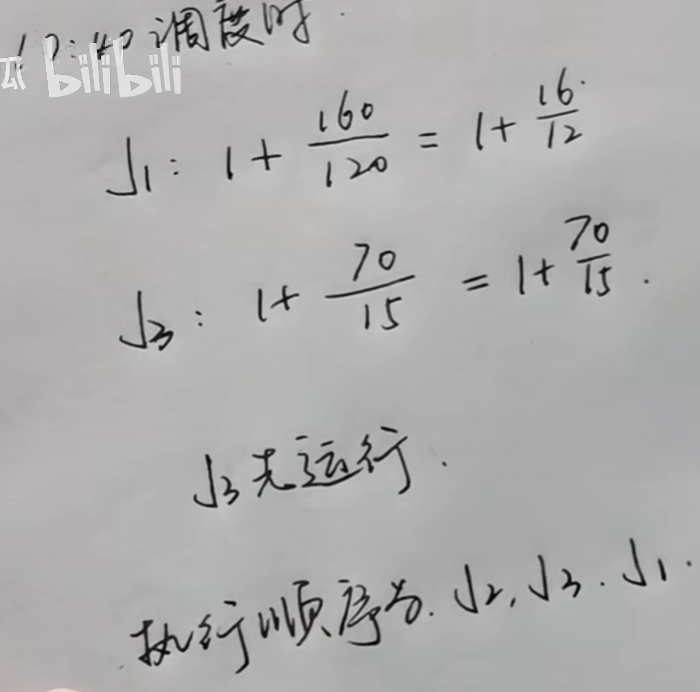 10:40调度时.
bilibili
J1: 1 + 160/120 = 1 + 16/12
J3: 1 + 70/15 = 1 + 70/15.
J3先运行.
执行顺序为. J2, J3. J1.